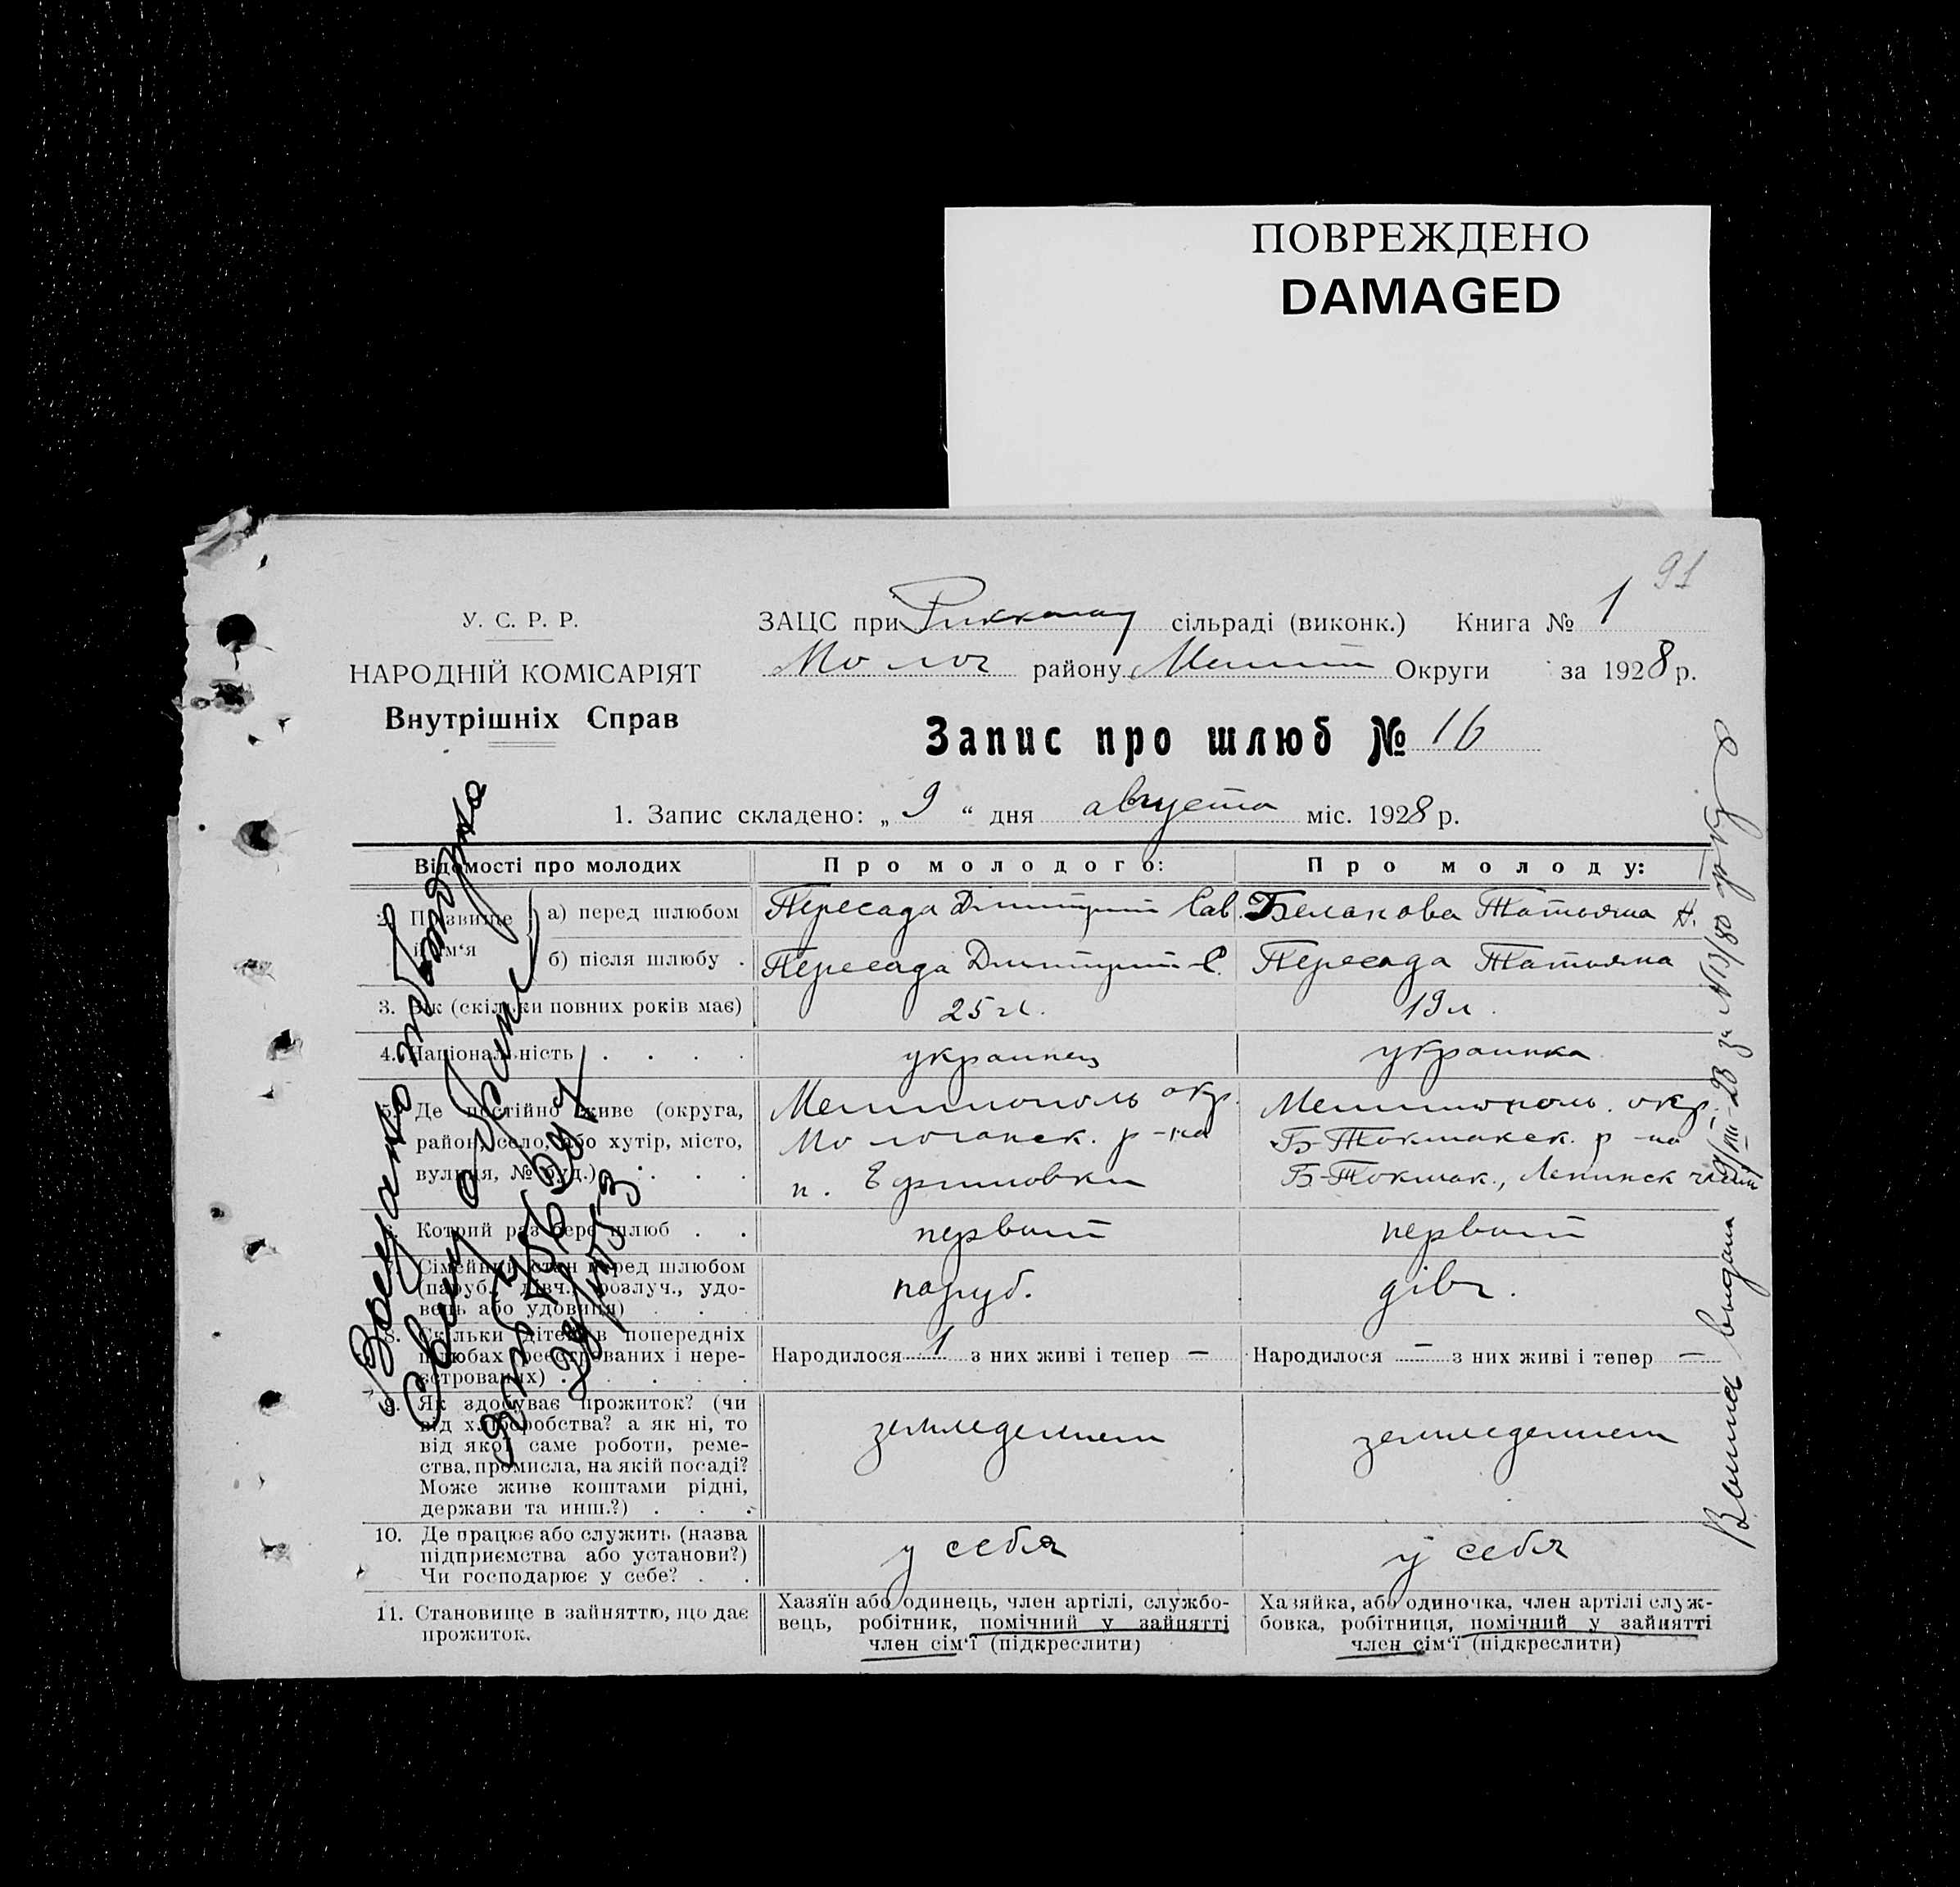 ПОВРЕЖДЕНО
DAMAGED
91
У. С. Р. Р.
НАРОДНІЙ КОМІСАРІЯТ
Внутрішніх Справ
ЗАЦС при сільраді (виконк.) Книга № 1
Молоч району Округи за 1928 р.
Запис про шлюб № 16
1. Запис складено: „ 9 “ дня августа міс. 1928 р.
Відомості про молодих
Про молодого:
Про молоду:
2. Прізвище і ім‘я
а) перед шлюбом
Пересада Дмитрий Сав.
Белакова Татьяна
б) після шлюбу .
Пересада Дмитрий С.
Пересада Татьяна
3. Вік (скільки повних років має)
25 л.
19 л.
4. Національність . . . .
украинец
украинка
5. Де постійно живе (округа,
район, село, або хутір, місто,
вулиця, № буд.) . . . .
Мелитополь окр.
Молочанск. р-на
п.
Мелитополь. окр.
Б-Токмакск. р-на
Б-Токмак., Ленинск
6. Котрий раз бере шлюб . .
первый
первый
7. Сімейний стан перед шлюбом
(паруб., дівч., розлуч., удо-
вець або удовиця) . . .
паруб.
дівч.
8. Скільки дітей в попередніх
шлюбах реєстрованих і нере-
єстрованих) . . . . .
Народилося 1 з них живі і тепер —
Народилося — з них живі і тепер —
9. Як здобуває прожиток? (чи
від хліборобства? а як ні, то
від якої саме роботи, реме-
ства, промисла, на якій посаді?
Може живе коштами рідні,
держави та инш.?) . . .
земледелием
земледелием
10. Де працює або служить (назва
підприємства або установи?)
Чи господарює у себе? . .
у себя
у себя
11. Становище в зайняттю, що дає
прожиток.
Хазяїн або одинець, член аргілі, службо-
вець, робітник, помічний у зайнятті
член сім‘ї (підкреслити)
Хазяйка, або одиночка, член артілі служ-
бовка, робітниця, помічний у зайнятті
член сім‘ї (підкреслити)
выдана